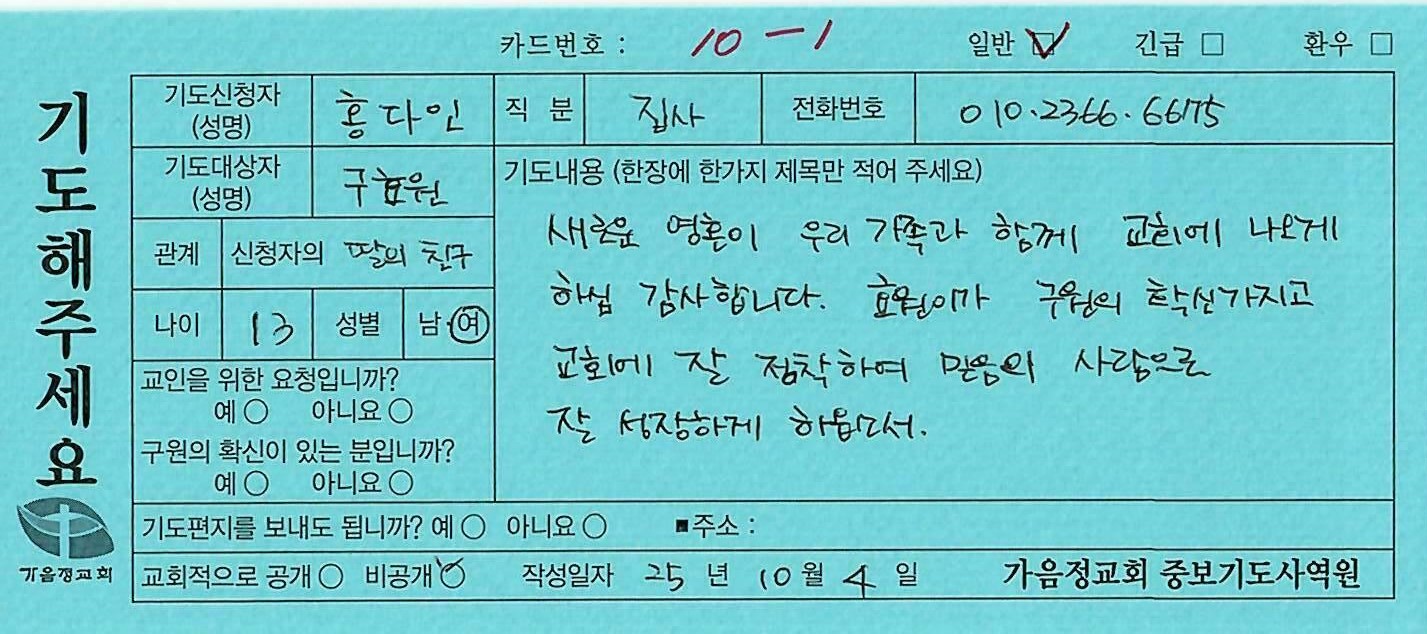 카드번호 : 10-1 일반 ☑ 긴급 □ 환우 □
기도해주세요
가음정교회
기도신청자 (성명) 홍다인 직 분 집사 전화번호 010.2366.6675
기도대상자 (성명) 구효원
관계 신청자의 딸의 친구
나이 13 성별 남·여
교인을 위한 요청입니까?
예 ○ 아니요 ○
구원의 확신이 있는 분입니까?
예 ○ 아니요 ○
기도내용 (한장에 한가지 제목만 적어 주세요)
새로운 영혼이 우리 가족과 함께 교회에 나오게
하심 감사합니다. 효원이가 구원의 확신가지고
교회에 잘 정착하여 믿음의 사람으로
잘 성장하게 하옵소서.
기도편지를 보내도 됩니까? 예 ○ 아니요 ○ ■주소 :
교회적으로 공개 ○ 비공개 ○ 작성일자 25 년 10 월 4 일 가음정교회 중보기도사역원